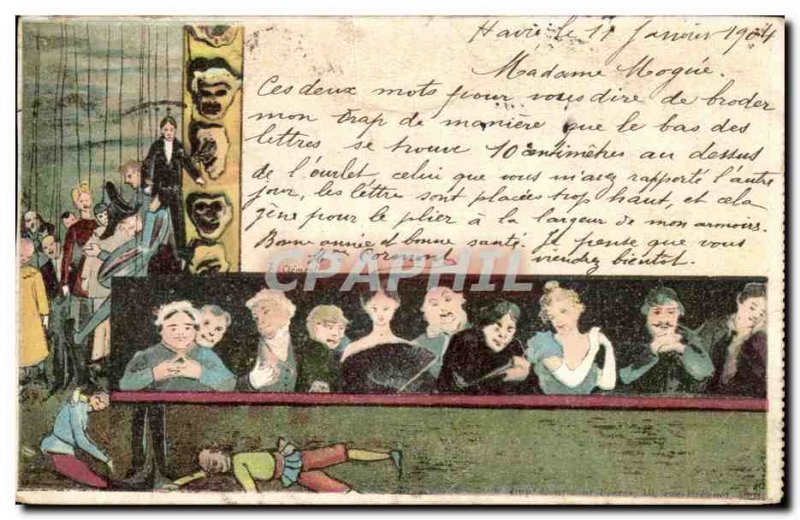 Havre le 11 Janvier 1904
Madame Mogué.
Ces deux mots pour vous dire de broder
mon drap de manière que le bas des
lettres se trouve 10 centimêtres au dessus
de l'ourlet, celui que vous m'avez rapporté l'autre
jour, les léttre sont placées trop haut, et cela
gène pour le plier à la largeur de mon armoire.
Bonne année et bonne santé. Je pense que vous
viendrez bientôt.
CPAPHIL.COM